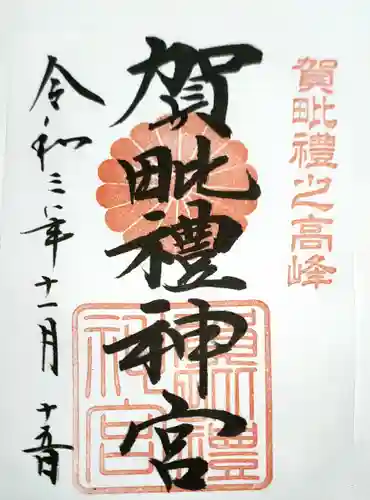 賀毗禮之高峰
賀毗禮神宮
令和三年十一月十五日
賀毗禮神宮